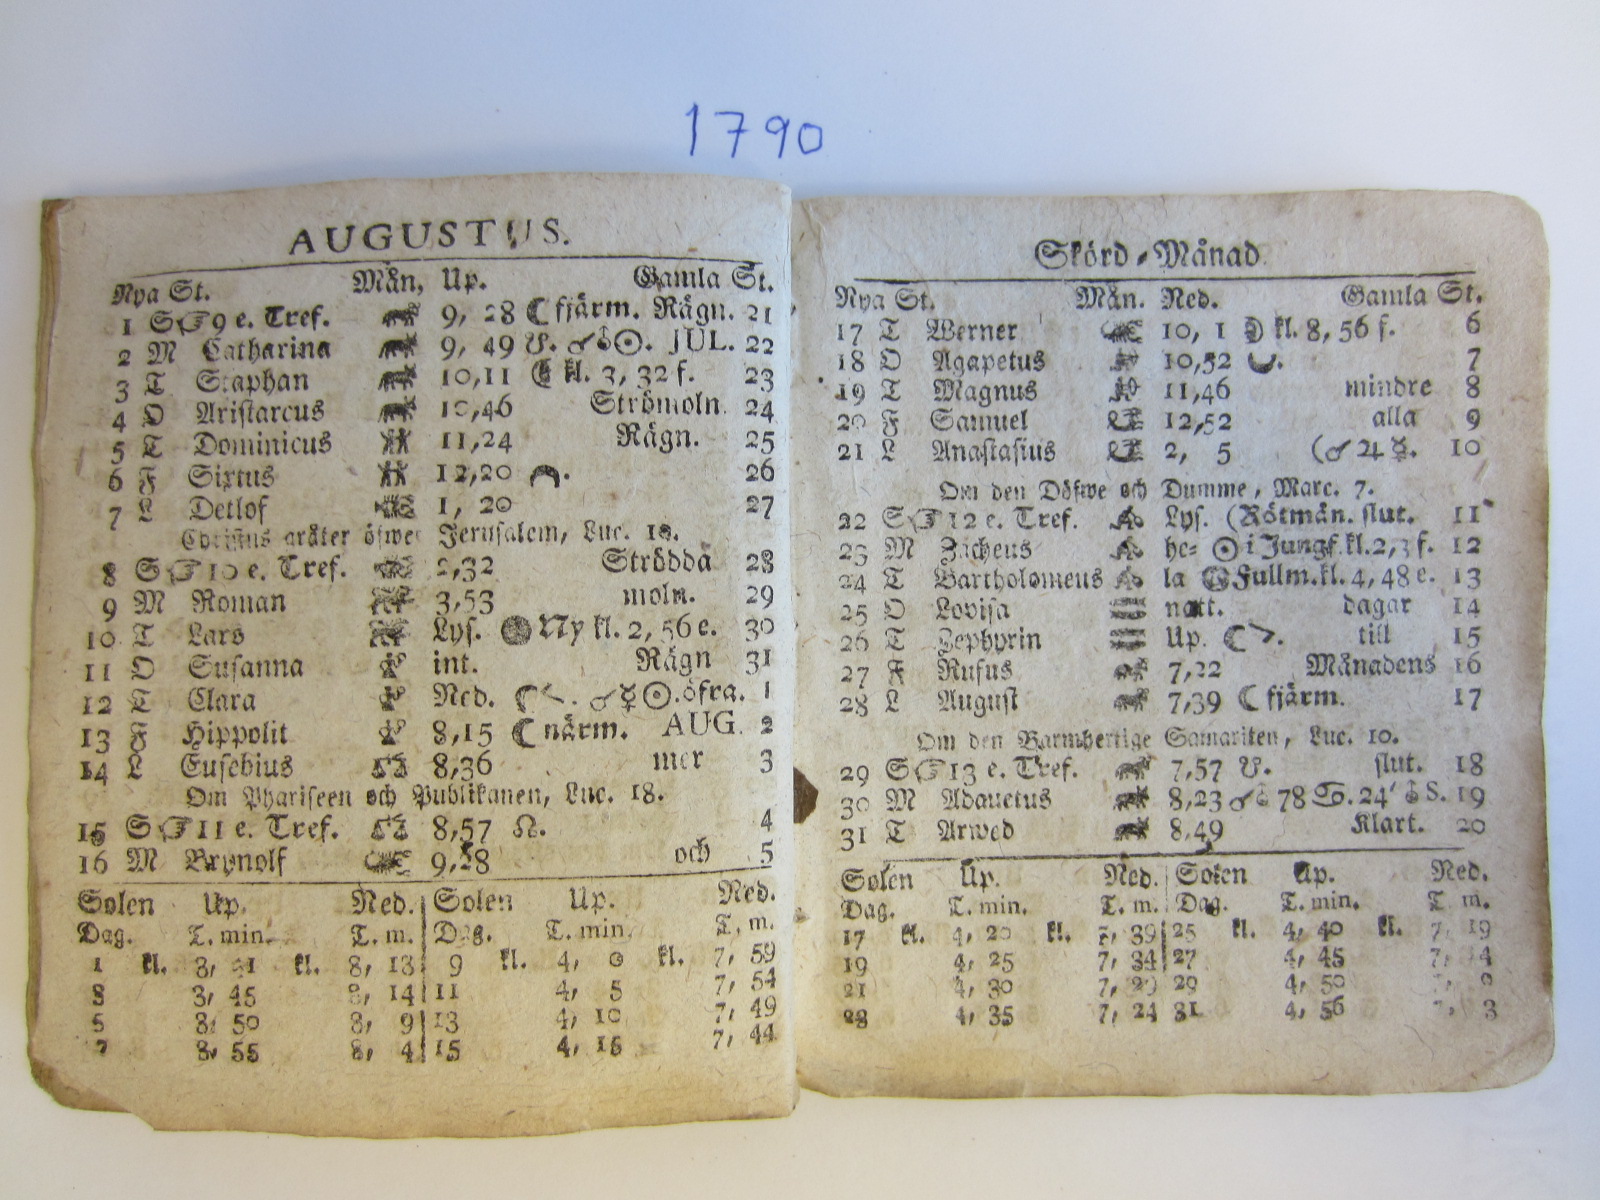 1790
AUGUSTUS.
Nya St. Mån. Up. Gamla St.
1 S☞9 e. Tref. 9, 28 ☾fjärm. Rägn. 21
2 M Catharina 9, 49 ☋. ☌♁☉. JUL. 22
3 T Staphan 10,11 ☾ kl. 3, 32 f. 23
4 O Aristarcus 10,46 Strömoln. 24
5 T Dominicus 11,24 Rägn. 25
6 F Sixtus 12,20 26
7 L Detlof 1, 20 27
Christus gråter öfwer Jerusalem, Luc. 19.
8 S☞10 e. Tref. 2,32 Strödda 28
9 M Roman 3,53 moln. 29
10 T Lars Lys. Ny kl. 2, 56 e. 30
11 O Susanna int. Rägn 31
12 T Clara Ned. ☌☿☉.öfra. 1
13 F Hippolit 8,15 ☾närm. AUG. 2
14 L Eusebius 8,36 mer 3
Om Phariseen och Publikanen, Luc. 18.
15 S☞11 e. Tref. 8,57 ☊. 4
16 M Brynolf 9,28 och 5
Solen Up. Ned. Solen Up. Ned.
Dag. T. min. T. m. Dag. T. min. T. m.
1 kl. 3, 41 kl. 8, 13 9 kl. 4, 0 kl. 7, 59
3 3, 45 8, 14 11 4, 5 7, 54
5 3, 50 8, 9 13 4, 10 7, 49
7 3, 55 8, 4 15 4, 15 7, 44
Skörd-Månad
Nya St. Mån. Ned. Gamla St.
17 T Werner 10, 1 ☽ kl. 8, 56 f. 6
18 O Agapetus 10,52 7
19 T Magnus 11,46 mindre 8
20 F Samuel 12,52 alla 9
21 L Anastasius 2, 5 (☌ ♃ ☿. 10
Om den Döfwe och Dumme, Marc. 7.
22 S☞12 e. Tref. Lys. (Rötmån. slut. 11
23 M Zacheus he= ☉ i Jungf.kl.2,3 f. 12
24 T Bartholomeus la Fullm.kl. 4, 48 e. 13
25 O Lovisa natt. dagar 14
26 T Zephyrin Up. till 15
27 F Rufus 7,22 Månadens 16
28 L August 7,39 ☾ fjärm. 17
Om den Barmhertige Samariten, Luc. 10.
29 S☞13 e. Tref. 7,57 ☋. slut. 18
30 M Adauctus 8,23 ☌♁ 78 ♋. 24' ♁ S. 19
31 T Arwed 8,49 Klart. 20
Solen Up. Ned. Solen Up. Ned.
Dag. T. min. T. m. Dag. T. min. T. m.
17 kl. 4, 20 kl. 7, 39 25 kl. 4, 40 kl. 7, 19
19 4, 25 7, 34 27 4, 45 7, 14
21 4, 30 7, 29 29 4, 50
23 4, 35 7, 24 31 4, 56 3